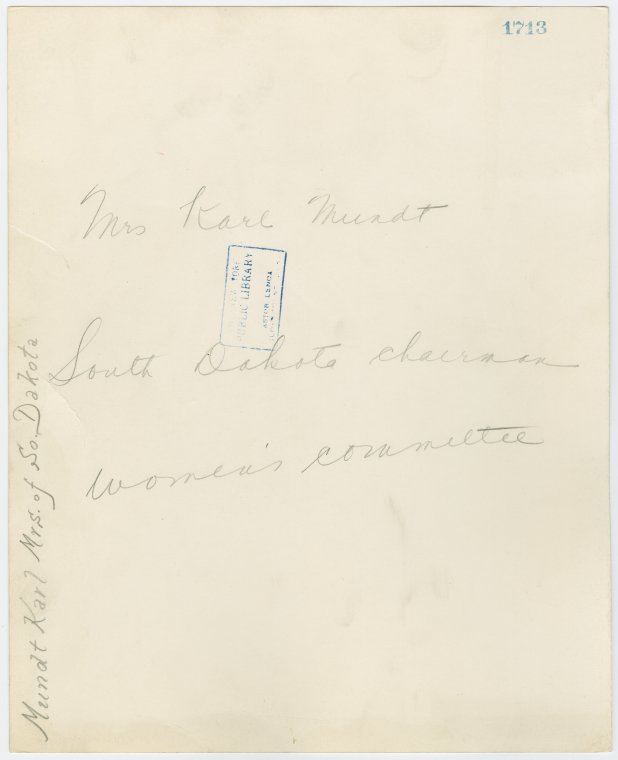 1713
Mrs Karl Mundt
YORK
PUBLIC LIBRARY
ASTOR LENOX
South Dakota chairman
women's committee
Mundt Karl Mrs. of So. Dakota